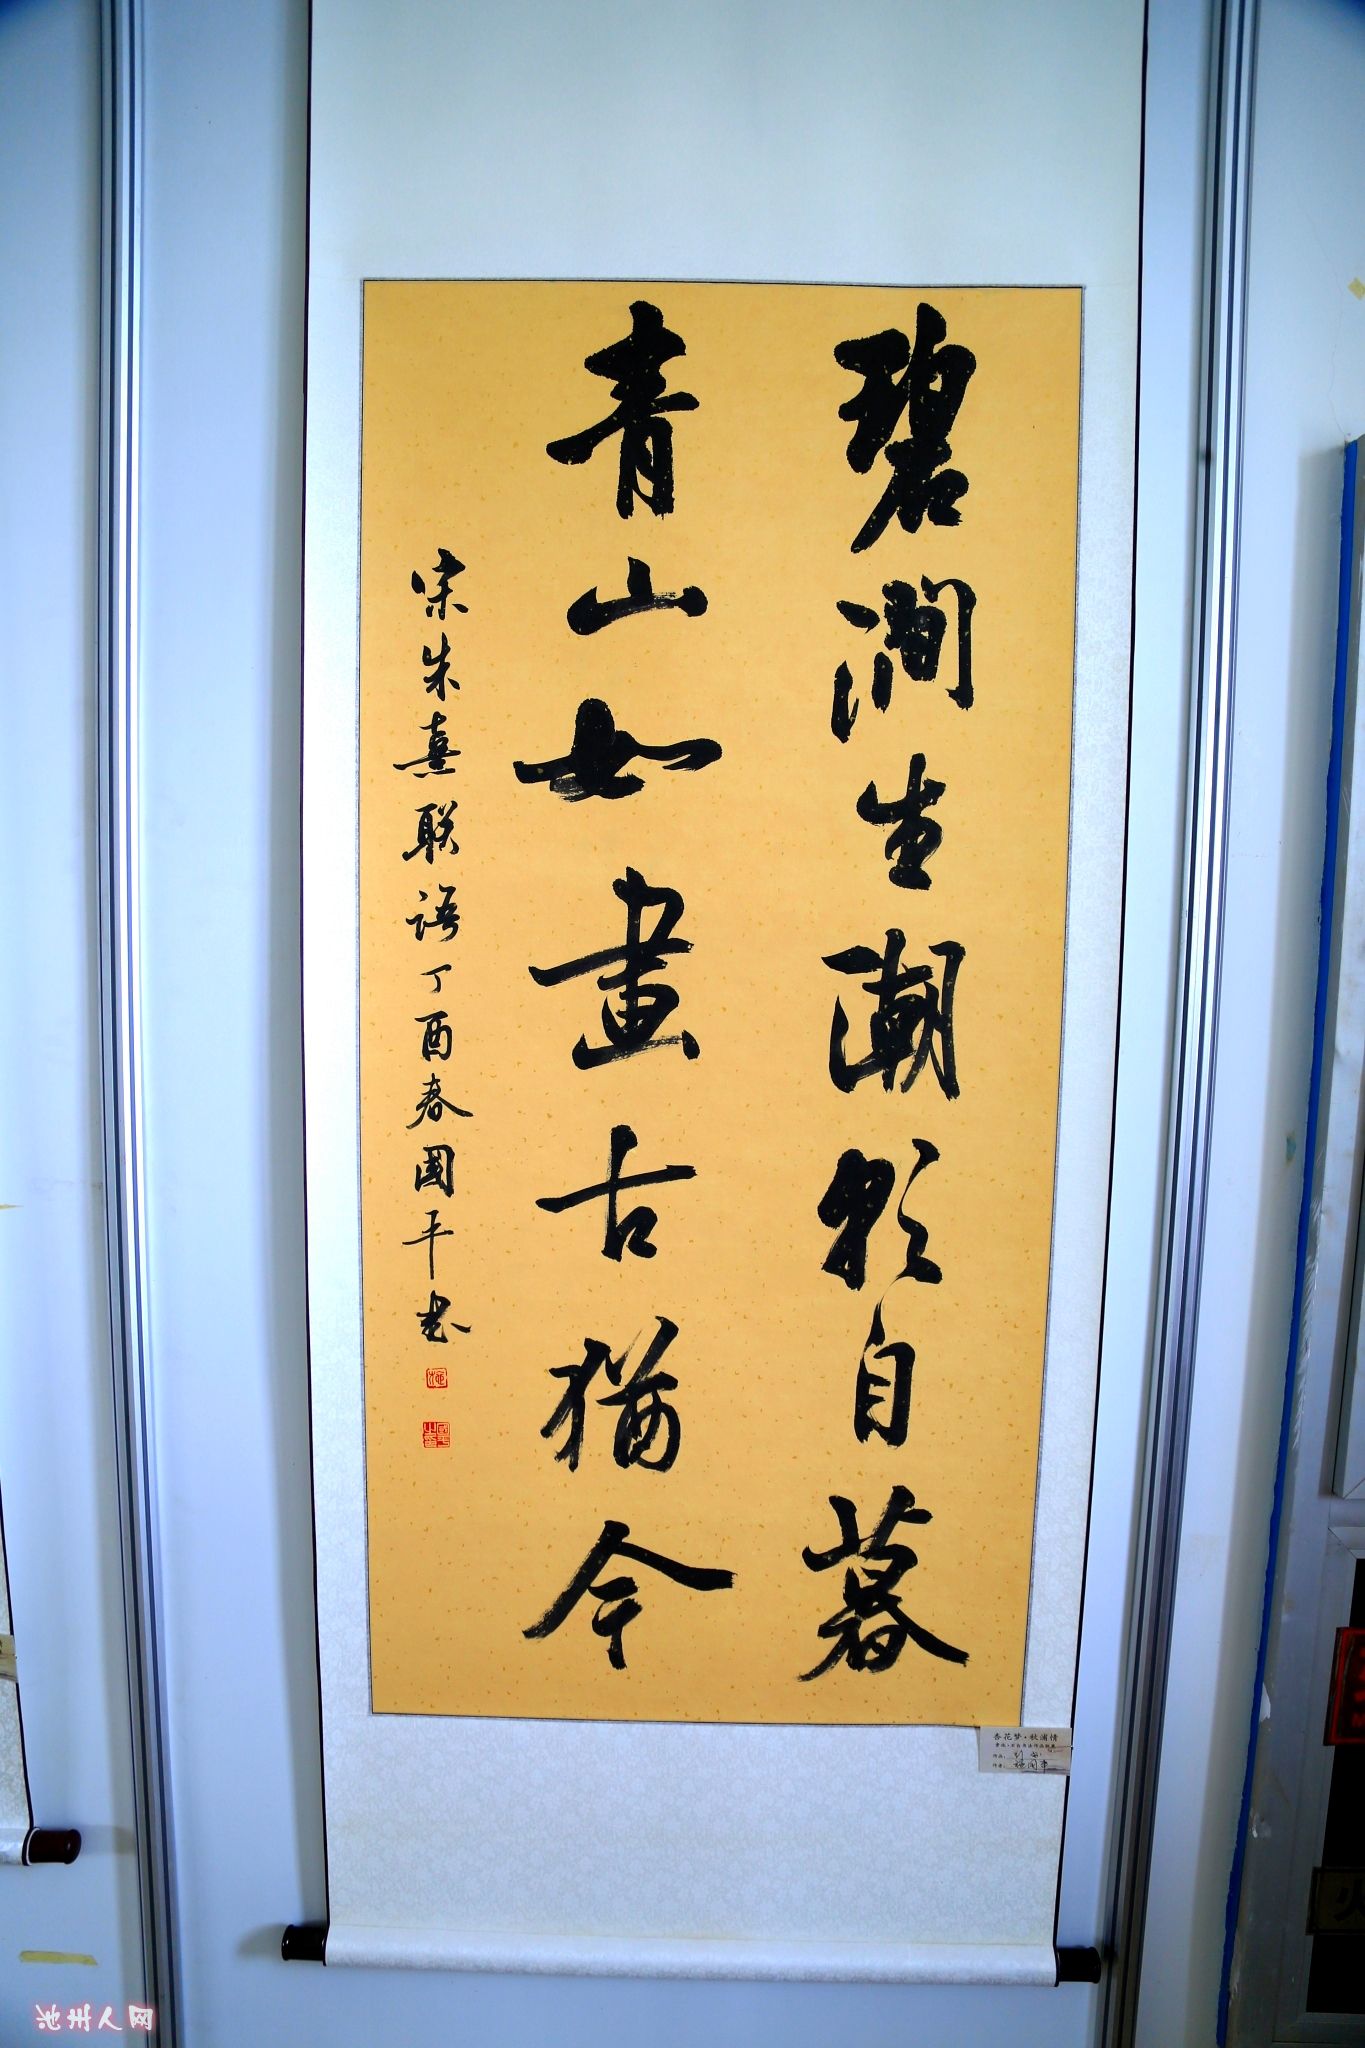 碧澗生潮朝自暮
青山如畫古猶今
宋朱熹联语丁酉春國平书
杏花梦·秋浦情
作品：
作者：施国平
池州人网